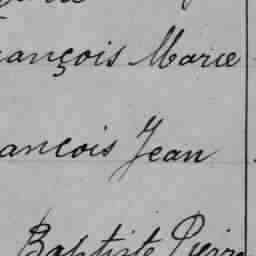 ançois Marie
ancois Jean
Baptiste Pierre